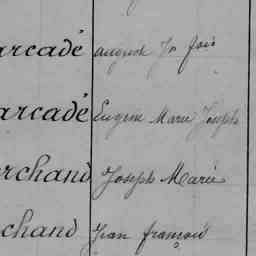 arcadé auguste Jn fois
arcadé Eugene Marie Joseph
rchand Joseph Marie
chand Jean françois